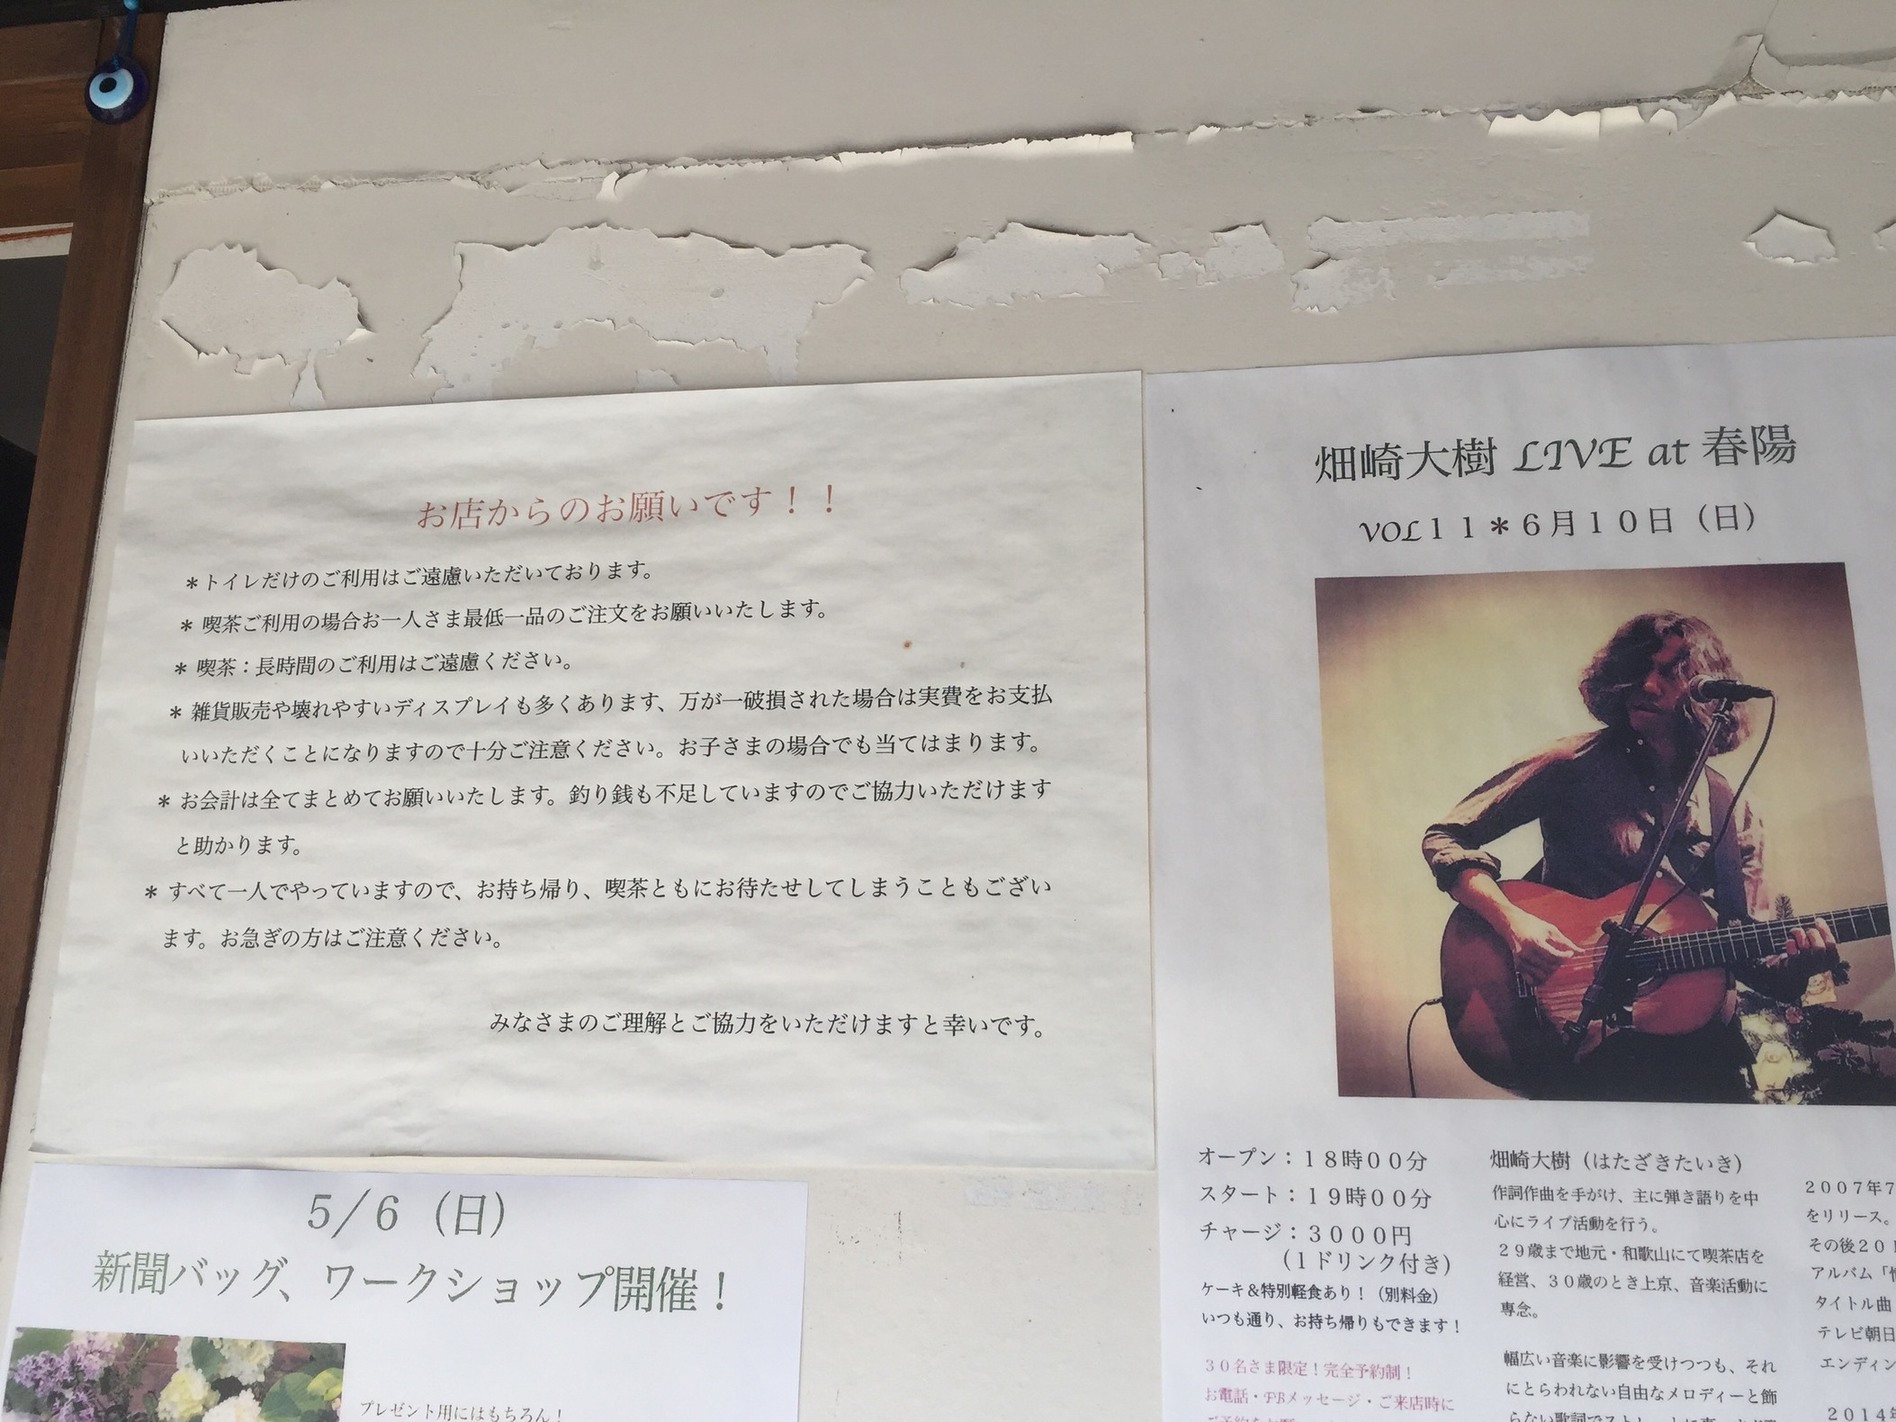 お店からのお願いです！！
＊トイレだけのご利用はご遠慮いただいております。
＊ 喫茶ご利用の場合お一人さま最低一品のご注文をお願いいたします。
＊ 喫茶：長時間のご利用はご遠慮ください。
＊ 雑貨販売や壊れやすいディスプレイも多くあります、万が一破損された場合は実費をお支払
いいただくことになりますので十分ご注意ください。お子さまの場合でも当てはまります。
＊ お会計は全てまとめてお願いいたします。釣り銭も不足していますのでご協力いただけます
と助かります。
＊ すべて一人でやっていますので、お持ち帰り、喫茶ともにお待たせしてしまうこともござい
ます。お急ぎの方はご注意ください。
みなさまのご理解とご協力をいただけますと幸いです。
5／6（日）
新聞バッグ、ワークショップ開催！
プレゼント用にはもちろん！
畑崎大樹 LIVE at 春陽
VOL１１＊６月１０日（日）
オープン：１８時００分
スタート：１９時００分
チャージ：３０００円
（１ドリンク付き）
ケーキ＆特別軽食あり！（別料金）
いつも通り、お持ち帰りもできます！
３０名さま限定！完全予約制！
お電話・FBメッセージ・ご来店時に
畑崎大樹（はたざきたいき）
作詞作曲を手がけ、主に弾き語りを中
心にライブ活動を行う。
２９歳まで地元・和歌山にて喫茶店を
経営、３０歳のとき上京、音楽活動に
専念。
幅広い音楽に影響を受けつつも、それ
にとらわれない自由なメロディーと飾
２００７年７
をリリース。
その後２０１
アルバム「
タイトル曲
テレビ朝日
エンディン
２０１４年